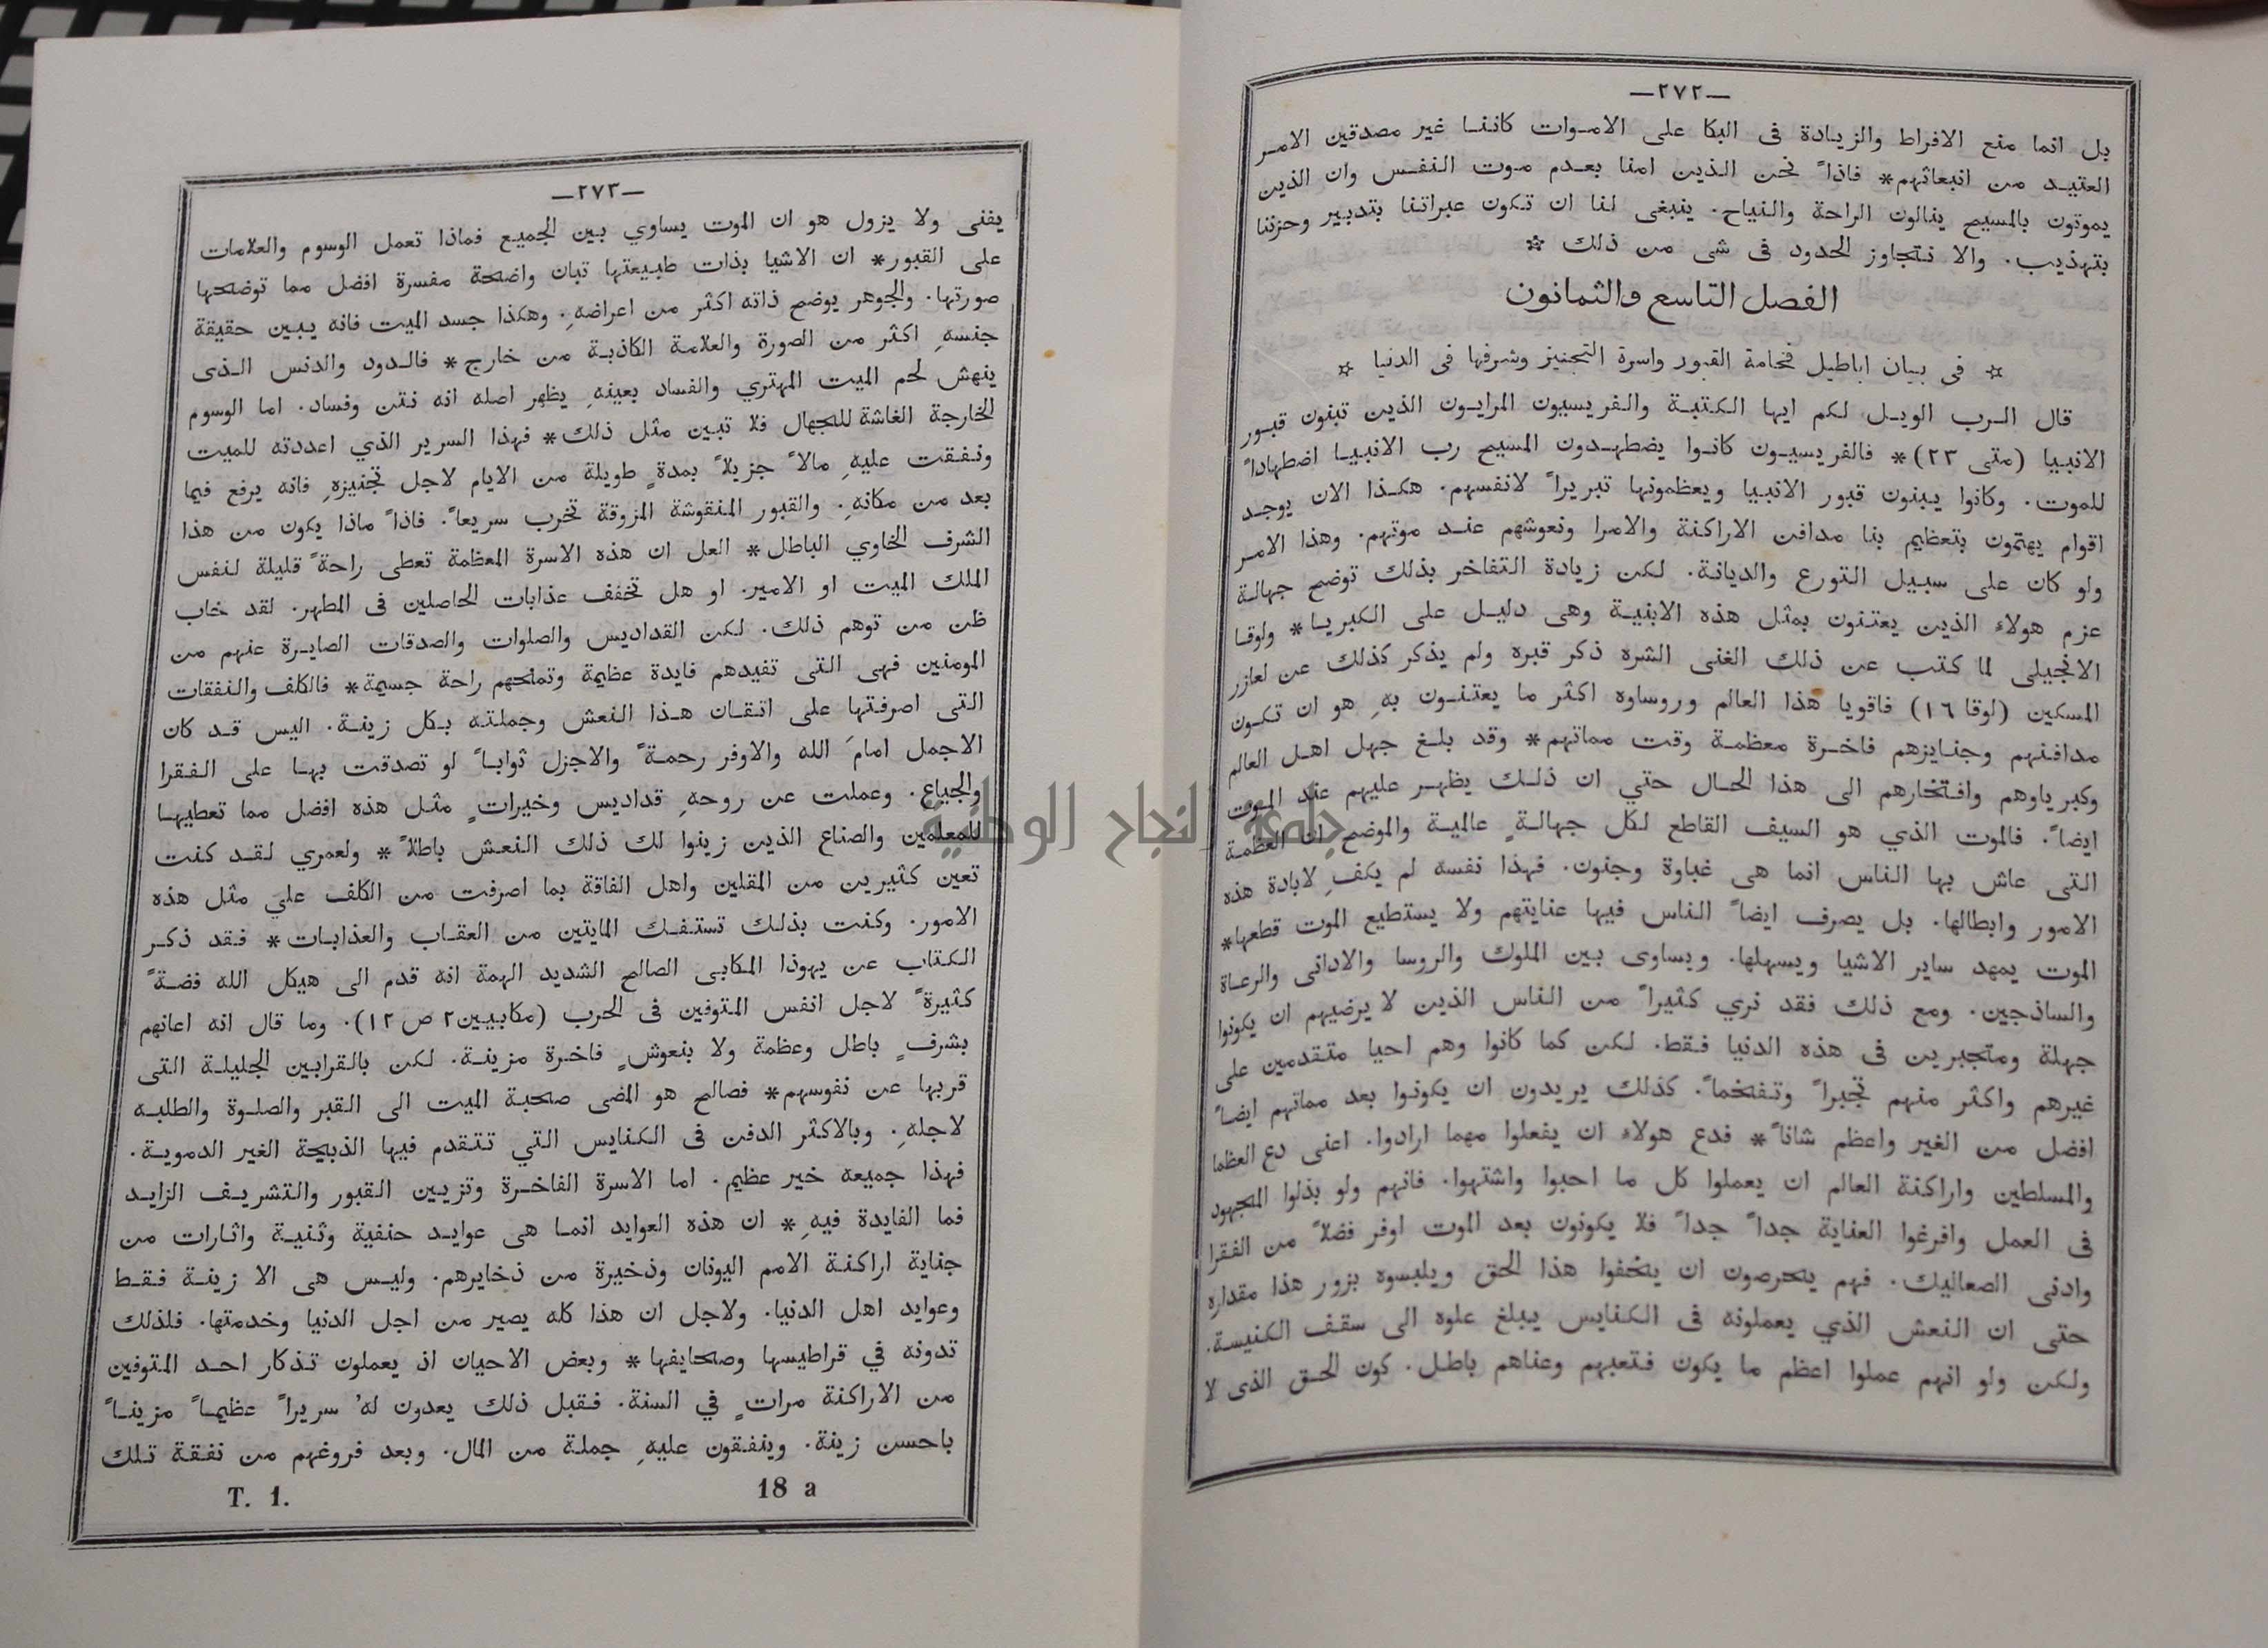 —٢٧٢—
بل انما منع الافراط والزيادة فى البكا على الاموات كاننا غير مصدقين الامر
العتيد من انبعاثهم* فاذاً نحن الذين امنا بعدم موت النفس وان الذين
يموتون بالمسيح ينالون الراحة والنياح. ينبغى لنا ان تكون عبراتنا بتدبير وحزننا
بتهذيب. والا نتجاوز الحدود فى شى من ذلك ☆
الفصل التاسع والثمانون
☆ فى بيان اباطيل فخامة القبور واسرة التجنيز وشرفها فى الدنيا ☆
قال الرب الويل لكم ايها الكتبة والفريسيون المرايون الذين تبنون قبور
الانبيا (متى ٢٣)* فالفريسيون كانوا يضطهدون المسيح رب الانبيا اضطهاداً
للموت. وكانوا يبنون قبور الانبيا ويعظمونها تبريراً لانفسهم. هكذا الان يوجد
اقوام يهتمون بتعظيم بنا مدافن الاراكنة والامرا ونعوشهم عند موتهم. وهذا الامر
ولو كان على سبيل التورع والديانة. لكن زيادة التفاخر بذلك توضح جهالة
عزم هولاء الذين يعتنون بمثل هذه الابنية وهى دليل على الكبريا* ولوقا
الانجيلى لما كتب عن ذلك الغنى الشره ذكر قبره ولم يذكر كذلك عن لعازر
المسكين (لوقا ١٦) فاقويا هذا العالم وروساوه اكثر ما يعتنون بهِ هو ان تكون
مدافنهم وجنايزهم فاخرة معظمة وقت مماتهم* وقد بلغ جهل اهل العالم
وكبرياوهم وافتخارهم الى هذا الحال حتي ان ذلك يظهر عليهم عند الموت
ايضاً. فالموت الذي هو السيف القاطع لكل جهالةٍ عالمية والموضح ان العظمة
التى عاش بها الناس انما هى غباوة وجنون. فهذا نفسه لم يكفِ لابادة هذه
الامور وابطالها. بل يصرف ايضاً الناس فيها عنايتهم ولا يستطيع الموت قطعها*
الموت يمهد ساير الاشيا ويسهلها. ويساوى بين الملوك والروسا والادانى والرعاة
والساذجين. ومع ذلك فقد نري كثيراً من الناس الذين لا يرضيهم ان يكونوا
جهلة ومتجبرين فى هذه الدنيا فقط. لكن كما كانوا وهم احيا متقدمين على
غيرهم واكثر منهم تجبراً وتفخماً. كذلك يريدون ان يكونوا بعد مماتهم ايضاً
افضل من الغير واعظم شاناً* فدع هولاء ان يفعلوا مهما ارادوا. اعنى دع العظما
والمسلطين واراكنة العالم ان يعملوا كل ما احبوا واشتهوا. فانهم ولو بذلوا المجهود
فى العمل وافرغوا العناية جداً جداً فلا يكونون بعد الموت اوفر فضلاً من الفقرا
وادنى الصعاليك. فهم يحرصون ان يخفوا هذا الحق ويلبسوه بزور هذا مقداره
حتى ان النعش الذي يعملونه فى الكنايس يبلغ علوه الى سقف الكنيسة.
ولكن ولو انهم عملوا اعظم ما يكون فتعبهم وعناهم باطل. كون الحق الذى لا
—٢٧٣—
يفنى ولا يزول هو ان الموت يساوي بين الجميع فماذا تعمل الوسوم والعلامات
على القبور* ان الاشيا بذات طبيعتها تبان واضحة مفسرة افضل مما توضحها
صورتها. والجوهر يوضح ذاته اكثر من اعراضهِ. وهكذا جسد الميت فانه يبين حقيقة
جنسهِ اكثر من الصورة والعلامة الكاذبة من خارج* فالدود والدنس الذى
ينهش لحم الميت المهتري والفساد بعينهِ يظهر اصله انه نتن وفساد. اما الوسوم
الخارجة الغاشة للجهال فلا تبين مثل ذلك* فهذا السرير الذي اعددته للميت
ونفقت عليهِ مالاً جزيلاً بمدةٍ طويلة من الايام لاجل تجنيزهِ فانه يرفع فيما
بعد من مكانهِ. والقبور المنقوشة المزوقة تخرب سريعاً. فاذاً ماذا يكون من هذا
الشرف الخاوي الباطل* العل ان هذه الاسرة المعظمة تعطى راحةً قليلة لنفس
الملك الميت او الامير. او هل تخفف عذابات الحاصلين فى المطهر. لقد خاب
ظن من توهم ذلك. لكن القداديس والصلوات والصدقات الصايرة عنهم من
المومنين فهى التى تفيدهم فايدة عظيمة وتمنحهم راحة جسيمة* فالكلف والنفقات
التى اصرفتها على اتقان هذا النعش وجملته بكل زينة. اليس قد كان
الاجمل امامَ الله والاوفر رحمةً والاجزل ثواباً لو تصدقت بها على الفقرا
والجياع. وعملت عن روحهِ قداديس وخيراتٍ مثل هذه افضل مما تعطيها
للمعلمين والصناع الذين زينوا لك ذلك النعش باطلاً* ولعمري لقد كنت
تعين كثيرين من المقلين واهل الفاقة بما اصرفت من الكلف علي مثل هذه
الامور. وكنت بذلك تستفك المايتين من العقاب والعذابات* فقد ذكر
الكتاب عن يهوذا المكابى الصالح الشديد الهمة انه قدم الى هيكل الله فضةً
كثيرةً لاجل انفس المتوفين فى الحرب (مكابيين٢ ص١٢). وما قال انه اعانهم
بشرفٍ باطل وعظمة ولا بنعوشٍ فاخرة مزينة. لكن بالقرابين الجليلة التى
قربها عن نفوسهم* فصالح هو المضى صحبة الميت الى القبر والصلوة والطلبه
لاجلهِ. وبالاكثر الدفن فى الكنايس التي تتقدم فيها الذبيحة الغير الدموية.
فهذا جميعه خير عظيم. اما الاسرة الفاخرة وتزيين القبور والتشريف الزايد
فما الفايدة فيهِ* ان هذه العوايد انما هى عوايد حنفية وثنية واثارات من
جناية اراكنة الامم اليونان وذخيرة من ذخايرهم. وليس هى الا زينة فقط
وعوايد اهل الدنيا. ولاجل ان هذا كله يصير من اجل الدنيا وخدمتها. فلذلك
تدونه في قراطيسها وصحايفها* وبعض الاحيان اذ يعملون تذكار احد المتوفين
من الاراكنة مراتٍ في السنة. فقبل ذلك يعدون لهُ سريراً عظيماً مزيناً
باحسن زينة. وينفقون عليهِ جملة من المال. وبعد فروغهم من نفقة تلك
T. 1. 18 a
جامعة النجاح الوطنية